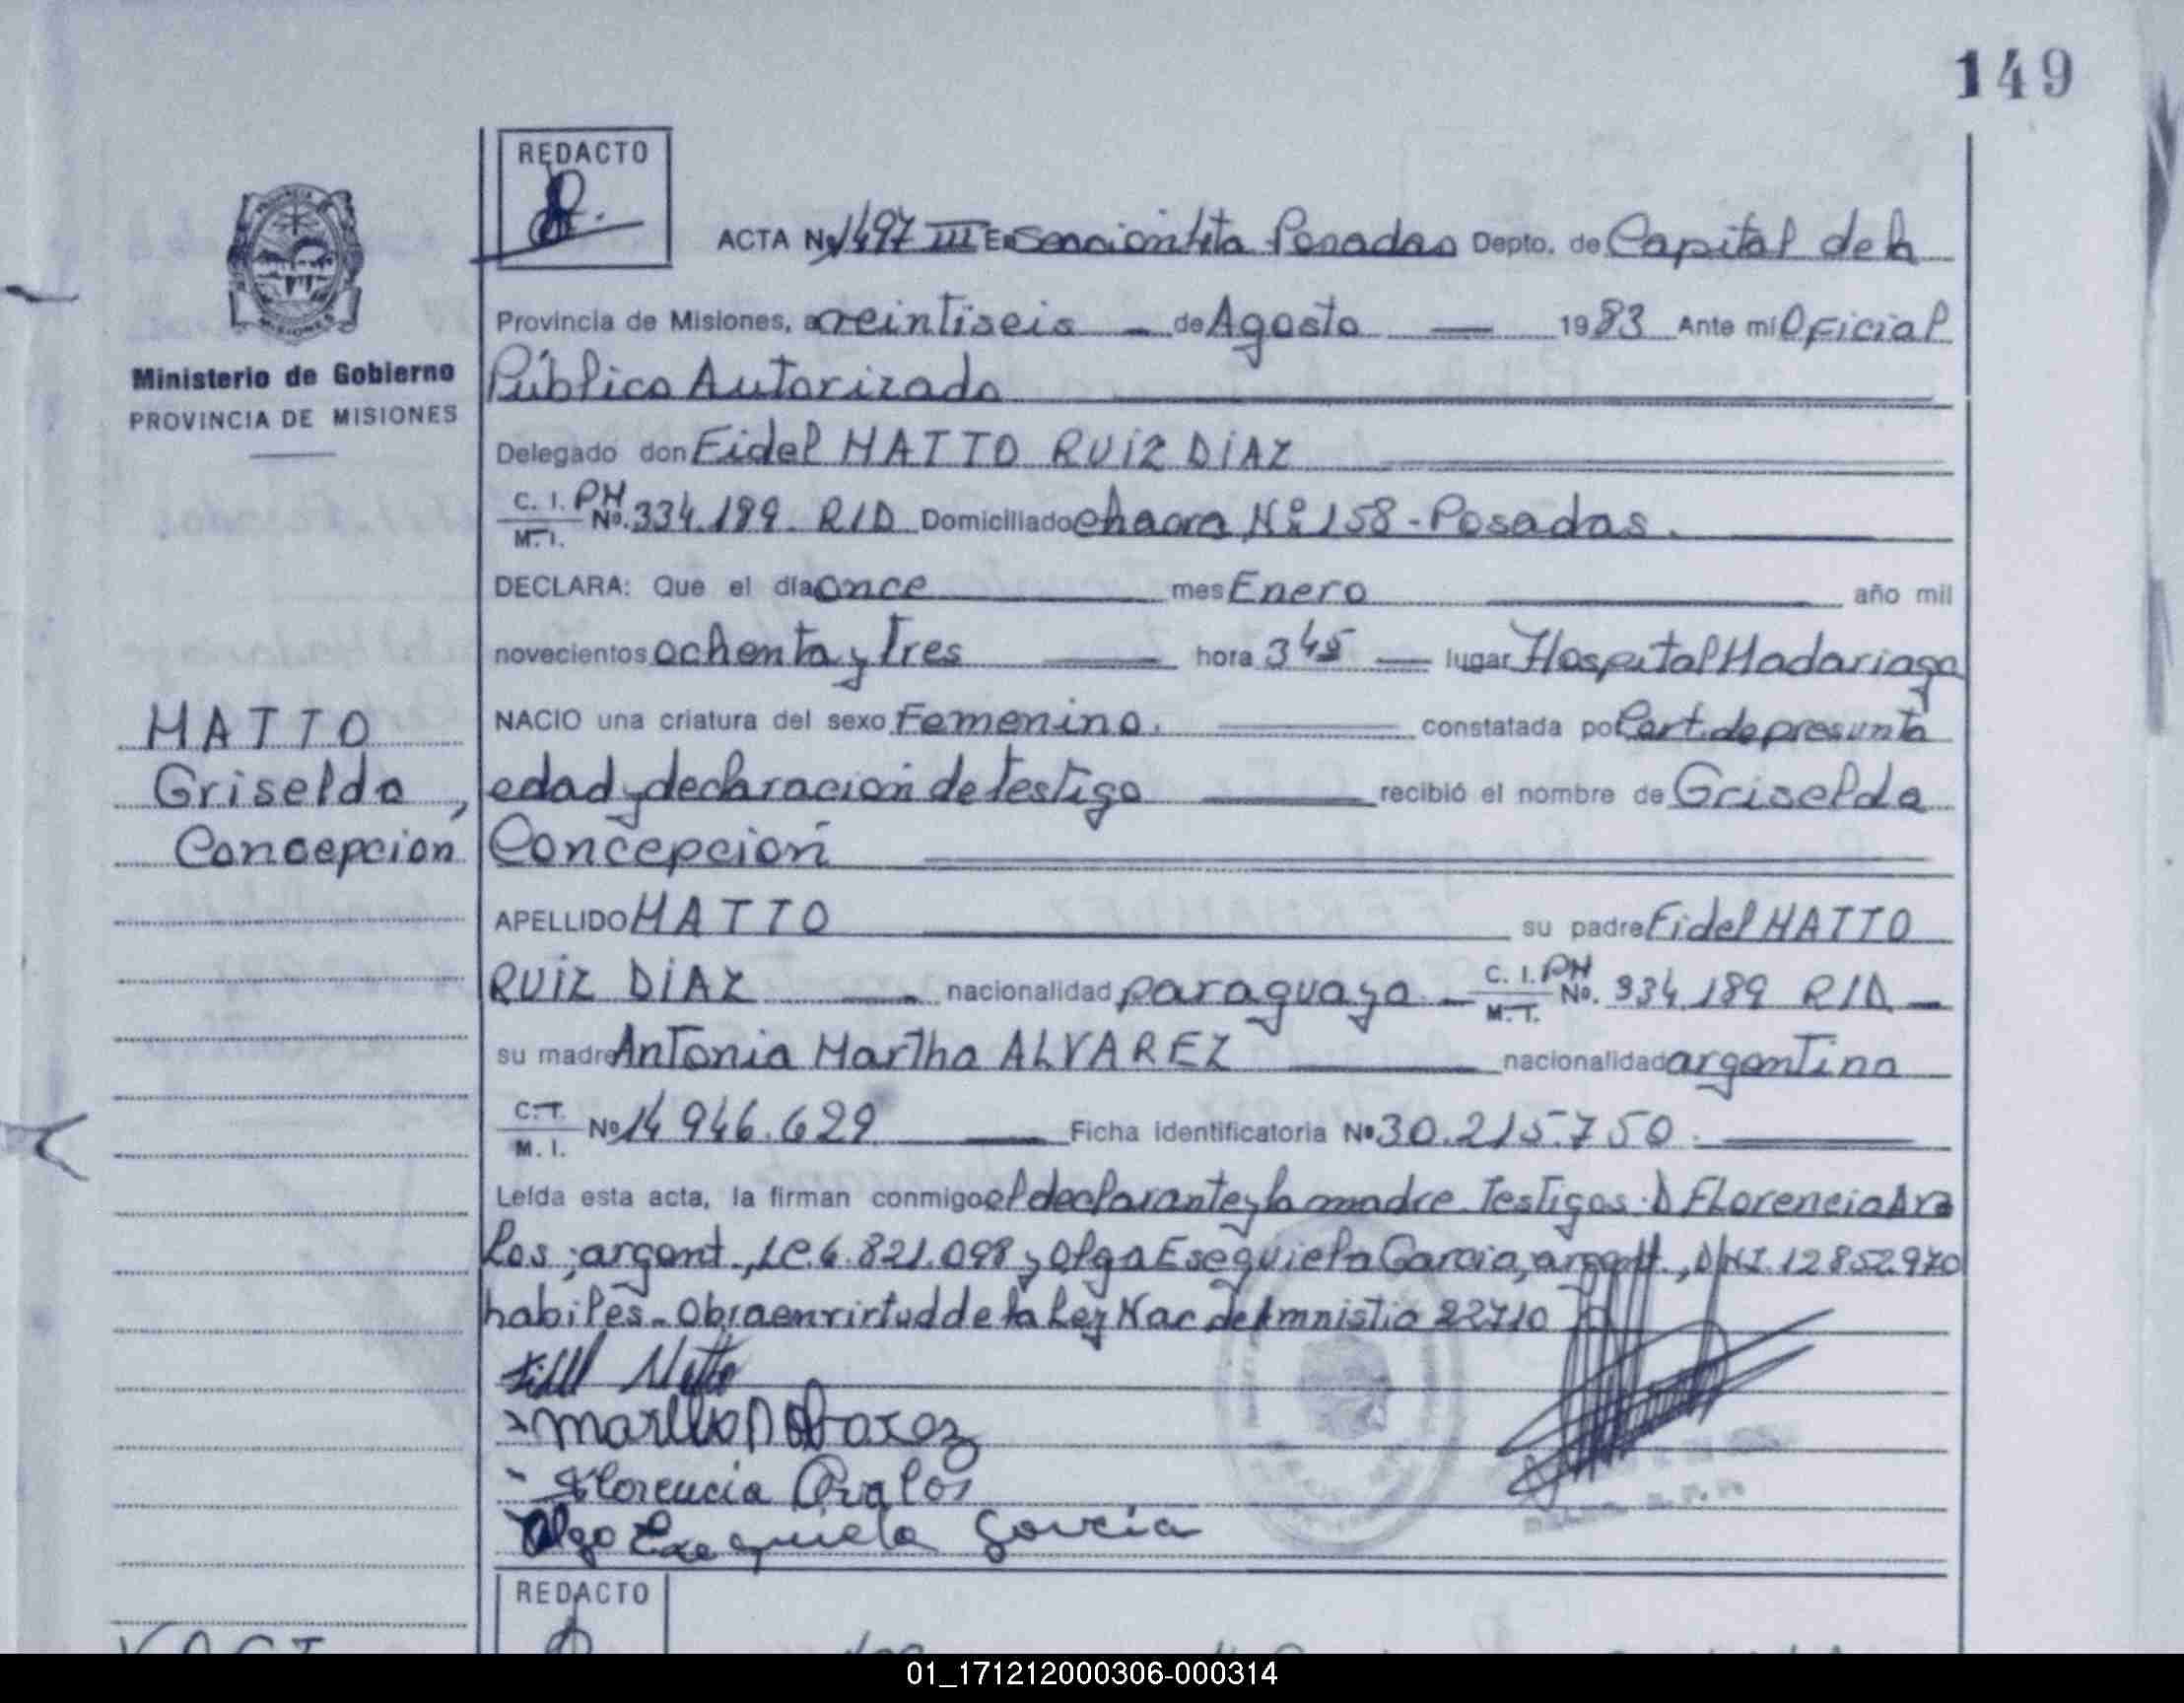 149
REDACTO
ACTA Nº 1497 III En sección 4ta Posadas Depto. de Capital de la
Provincia de Misiones, a veintiseis de Agosto 1983 Ante mi Oficial
Ministerio de Gobierno
PROVINCIA DE MISIONES
Público Autorizado
Delegado don Fidel MATTO RUIZ DIAZ
C. I. M. I. PN No. 334.189. RID Domiciliado chacra Nº 158 - Posadas.
DECLARA: Que el día once mes Enero año mil
novecientos ochenta y tres hora 3 45 lugar Hospital Madariaga
MATTO
Griselda,
Concepcion
NACIO una criatura del sexo Femenino. constatada por Cert. de presunta
edad y declaración de testigo recibió el nombre de Griselda
Concepción
APELLIDO MATTO su padre Fidel MATTO
RUIZ DIAZ nacionalidad paraguaya C. I. M. I. PN No. 334.189 RID
su madre Antonia Martha ALVAREZ nacionalidad argentina
C. I. M. I. No 14 946.629 Ficha identificatoria Nº 30.215.750.
Leída esta acta, la firman conmigo el declarante y la madre. Testigos: Florencia Ava
los; argent., LC. 6.821.098 y Olga Esequiela Garcia, argent., DNI. 12852970
habiles. Obra en virtud de la Ley Nac de Amnistia 22710
Fidel Matto
Florencia Avalos
Olga Esequiela Garcia
REDACTO
01_171212000306-000314